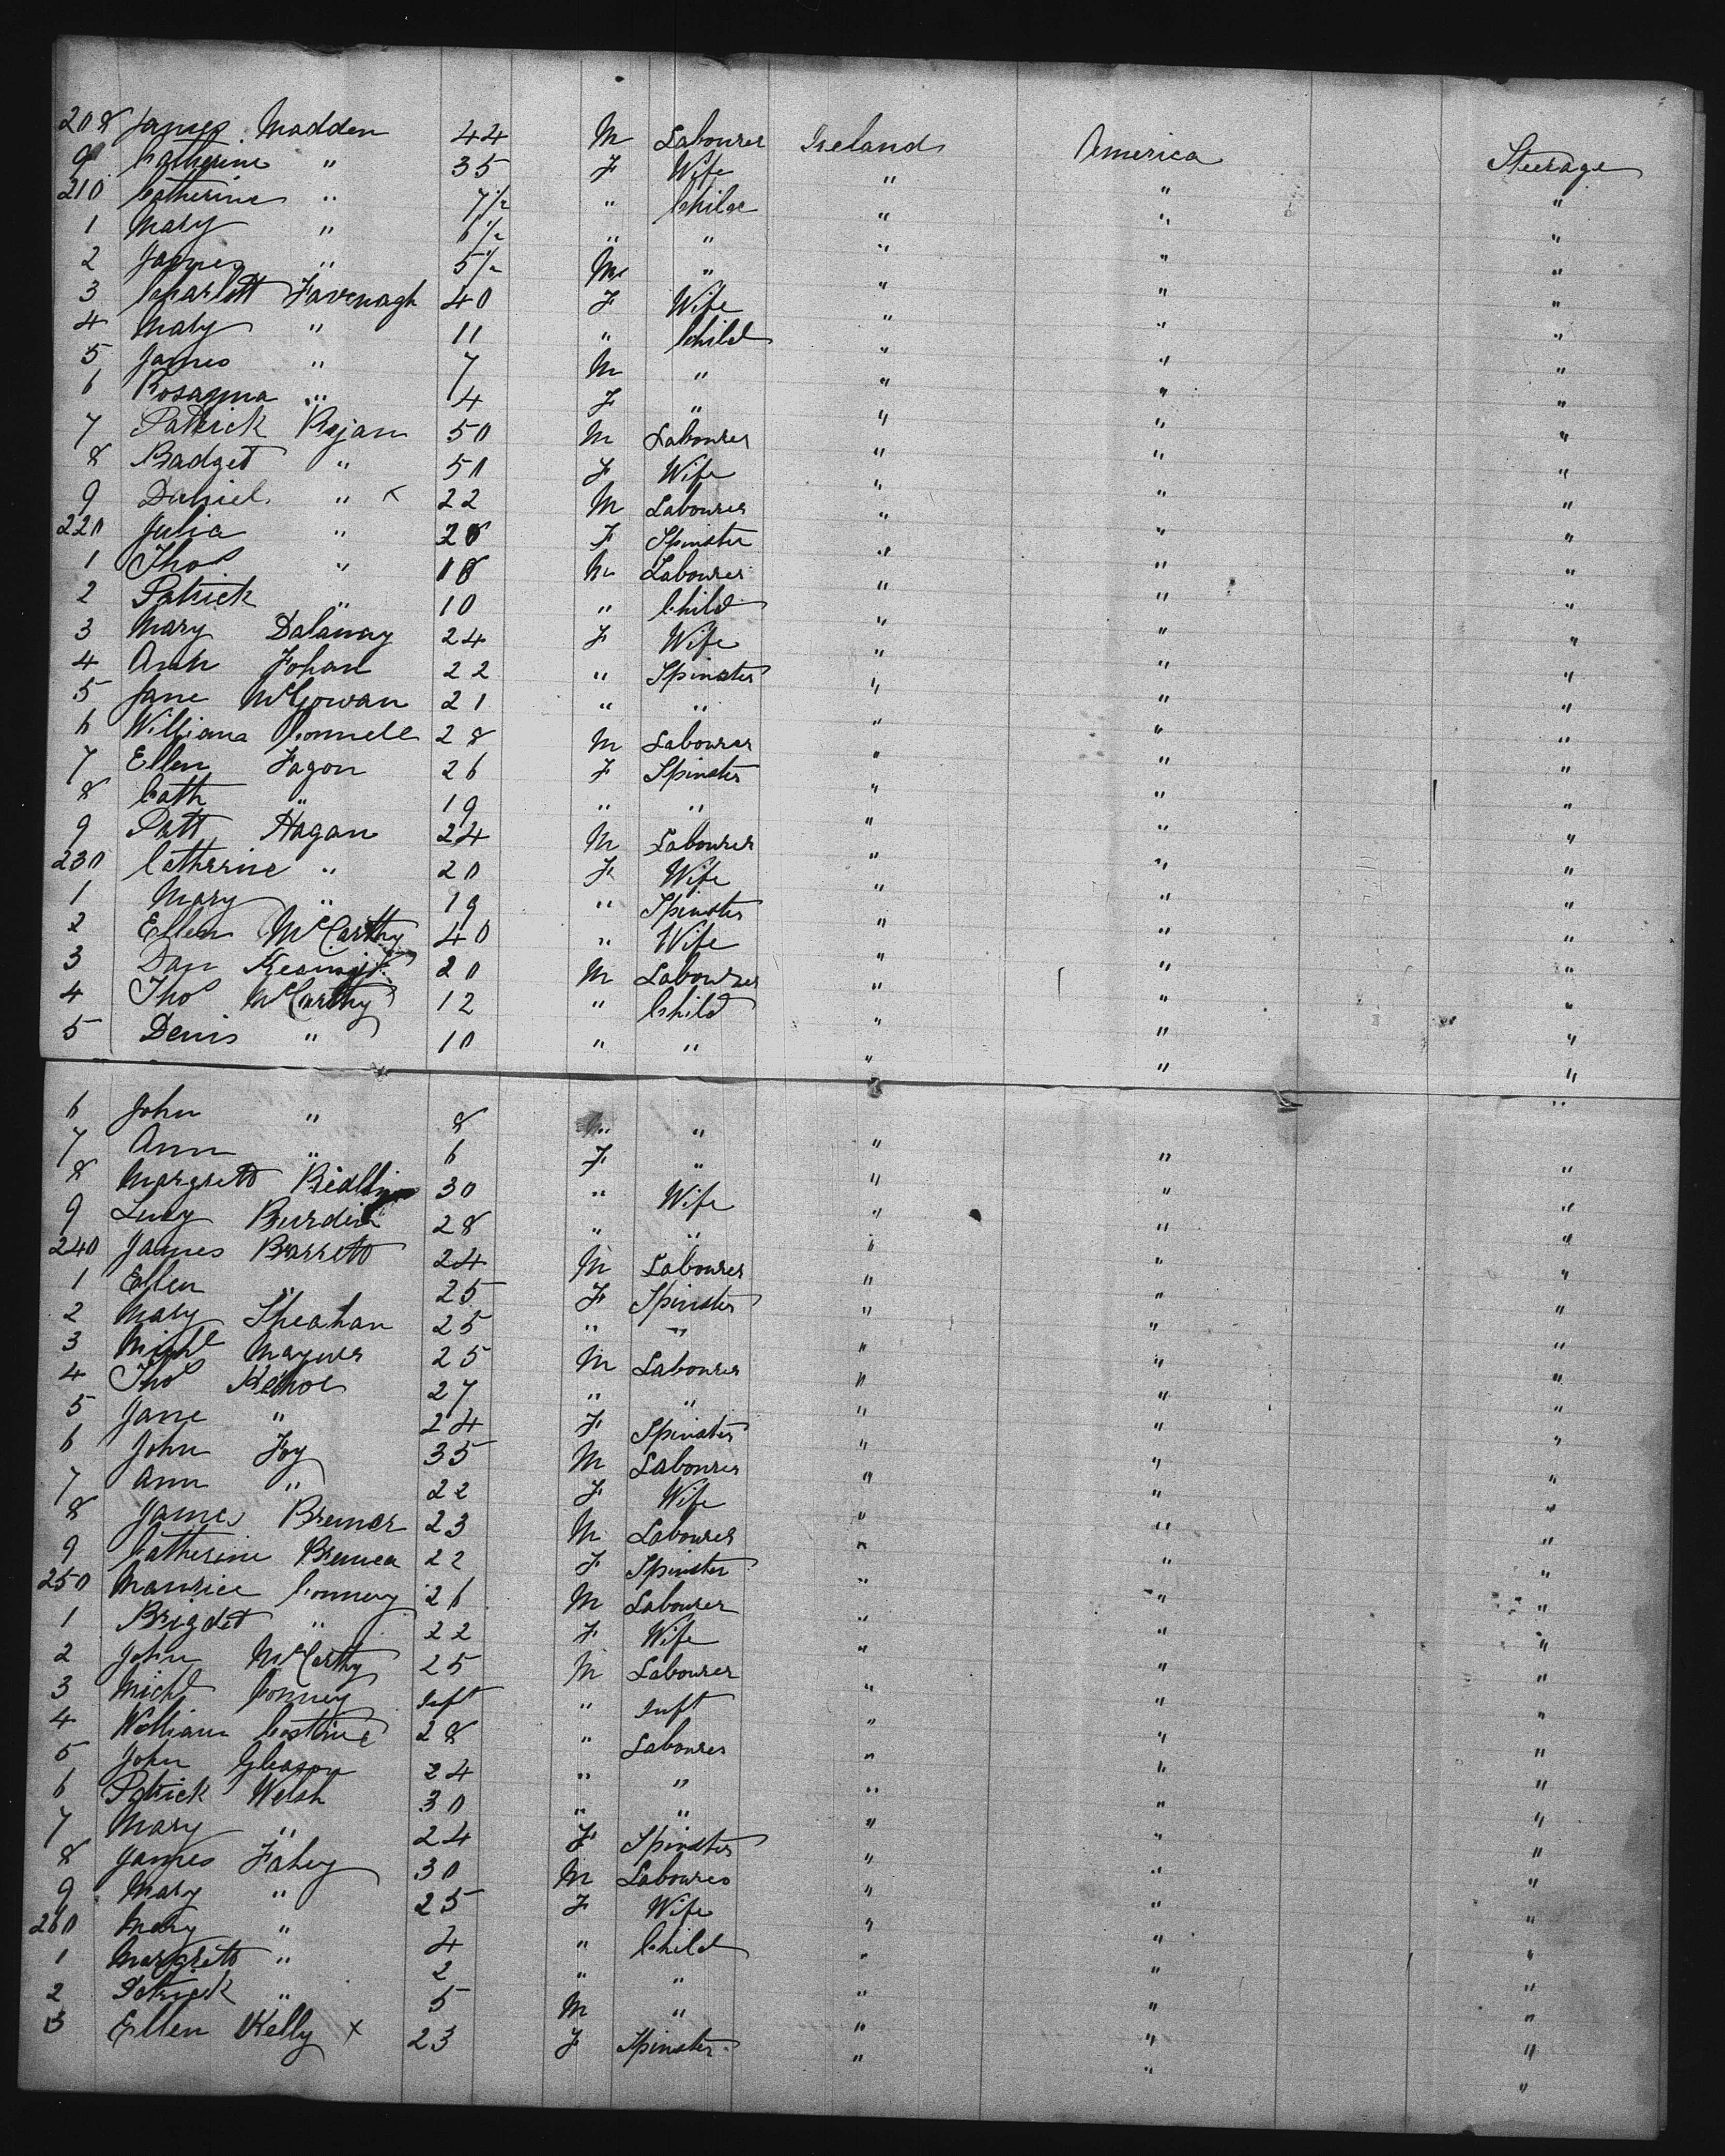 208 James Madden 44 M Labourer Ireland America Steerage
9 Catherine " 35 F Wife " " "
210 Catherine " 7½ " Child " " "
1 Mary " 6½ " " " " "
2 James " 5½ M " " " "
3 Charlott Kavenagh 40 F Wife " " "
4 Mary " 11 " Child " " "
5 James " 7 M " " " "
6 Rosanna " 4 F " " " "
7 Patrick 50 M Labourer " " "
8 Badget " 50 F Wife " " "
9 Daniel " x 22 M Labourer " " "
220 Julia " F Spinster " " "
1 Thos " 18 M Labourer " " "
2 Patrick " 10 " Child " " "
3 Mary Dalanay 24 F Wife " " "
4 Ann Fohan 22 " Spinster " " "
5 Jane McGowan 21 " " " " "
6 William Connell 28 M Labourer " " "
7 Ellen Fagon 26 F Spinster " " "
8 Cath " 19 " " " " "
9 Patt Hagan 24 M Labourer " " "
230 Catherine " 20 F Wife " " "
1 Mary " 19 " Spinster " " "
2 Ellen McCarthy 40 " Wife " " "
3 Dan 20 M Labourer " " "
4 Thos McCarthy 12 " Child " " "
5 Denis " 10 " " " " "
6 John " 8 " " " " "
7 Ann " 6 F " " " "
8 Margrett 30 " Wife " " "
9 Lucy Burdin 28 " " " " "
240 James Barrett 24 M Labourer " " "
1 Ellen " 25 F Spinster " " "
2 Mary Sheahan 25 " " " " "
3 Michl 25 M Labourer " " "
4 Thos Kehoe 27 " " " " "
5 Jane " 24 F Spinster " " "
6 John Foy 35 M Labourer " " "
7 Ann " 22 F Wife " " "
8 James Bremer 23 M Labourer " " "
9 Catherine 22 F Spinster " " "
250 Maurice Connery 26 M Labourer " " "
1 Brigdet " 22 F Wife " " "
2 John McCarthy 25 M Labourer " " "
3 Michl Conney Inft " Inft " " "
4 William 28 " Labourer " " "
5 John Gleason 24 " " " " "
6 Patrick Welsh 30 " " " " "
7 Mary " 24 F Spinster " " "
8 James Fahey 30 M Labourer " " "
9 Mary " 25 F Wife " " "
260 Mary " 4 " Child " " "
1 Margrett " 2 " " " " "
2 Patrick " 5 M " " " "
3 Ellen Kelly x 23 F Spinster " " "